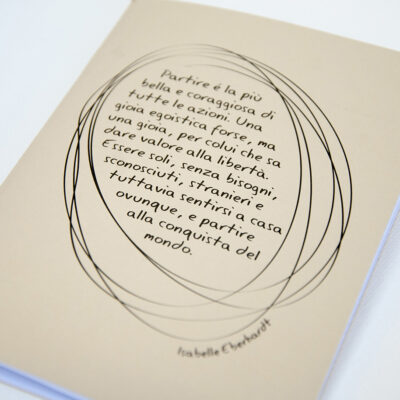 Partire é la più
bella e coraggiosa di
tutte le azioni. Una
gioia egoistica forse, ma
una gioia, per colui che sa
dare valore alla libertà.
Essere soli, senza bisogni,
sconosciuti, stranieri e
tuttavia sentirsi a casa
ovunque, e partire
alla conquista del
mondo.
Isabelle Eberhardt